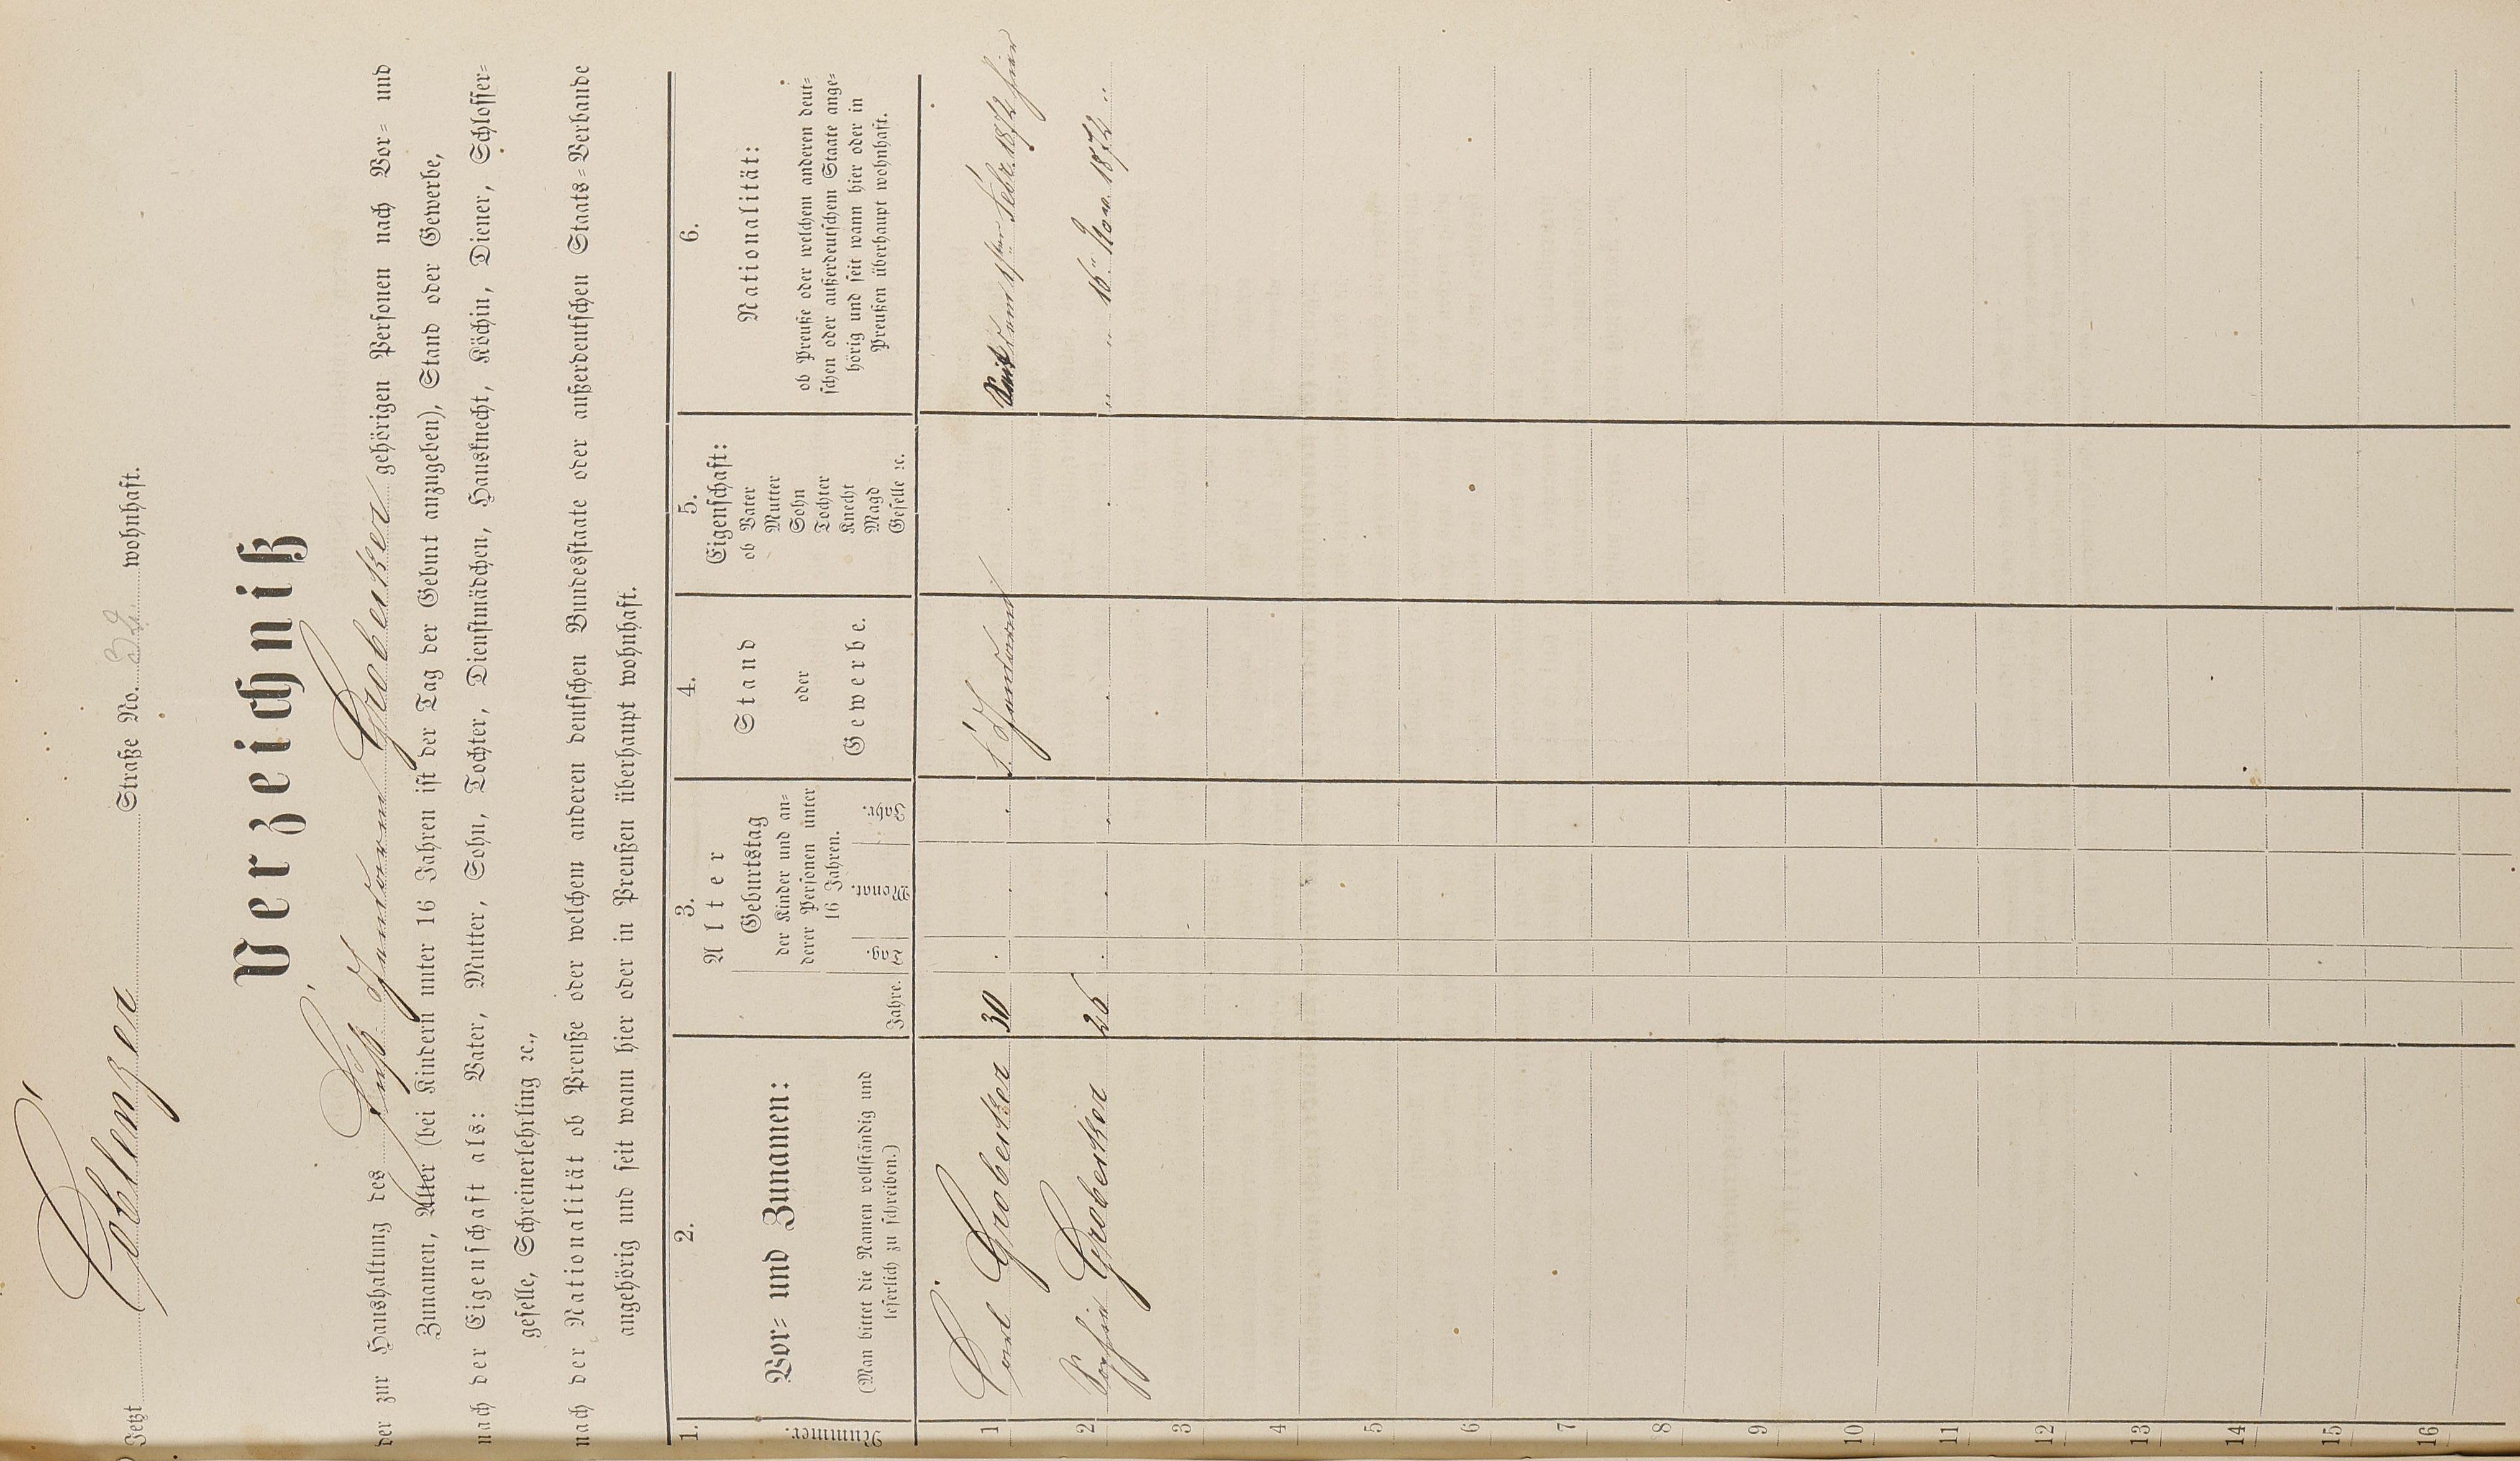 Jetzt Coblenzer Straße No. 32 wohnhaft.
Verzeichniß
der zur Haushaltung des Grobecker gehörigen Personen nach Vor- und
Zunamen, Alter (bei Kindern unter 16 Jahren ist der Tag der Gebnt anzugeben), Stand oder Gewerbe,
nach der Eigenschaft als: Vater, Mutter, Sohn, Tochter, Dienstmädchen, Hausknecht, Köchin, Diener, Schlosser-
geselle, Schreinerlehrling ꝛc.,
nach der Nationalität ob Preuße oder welchem anderen deutschen Bundesstaate oder außerdeutschen Staats-Verbande
angehörig und seit wann hier oder in Preußen überhaupt wohnhaft.
1.
Nummer.
2.
Vor- und Zunamen:
(Man bittet die Namen vollständig und
leserlich zu schreiben.)
3.
Alter
Jahre.
Geburtstag
der Kinder und an-
derer Personen unter
16 Jahren.
Tag. Monat. Jahr.
4.
Stand
oder
Gewerbe.
5.
Eigenschaft:
ob Vater
Mutter
Sohn
Tochter
Knecht
Magd
Geselle ꝛc.
6.
Nationalität:
ob Preuße oder welchem anderen deut-
schen oder außerdeutschen Staate ange-
hörig und seit wann hier oder in
Preußen überhaupt wohnhaft.
1 Carl Grobecker 30 Seit dem 1sten Febr. 1872 hier
2 Sophie Grobecker 26 " " 16" Nov. 1872 "
3
4
5
6
7
8
9
10
11
12
13
14
15
16